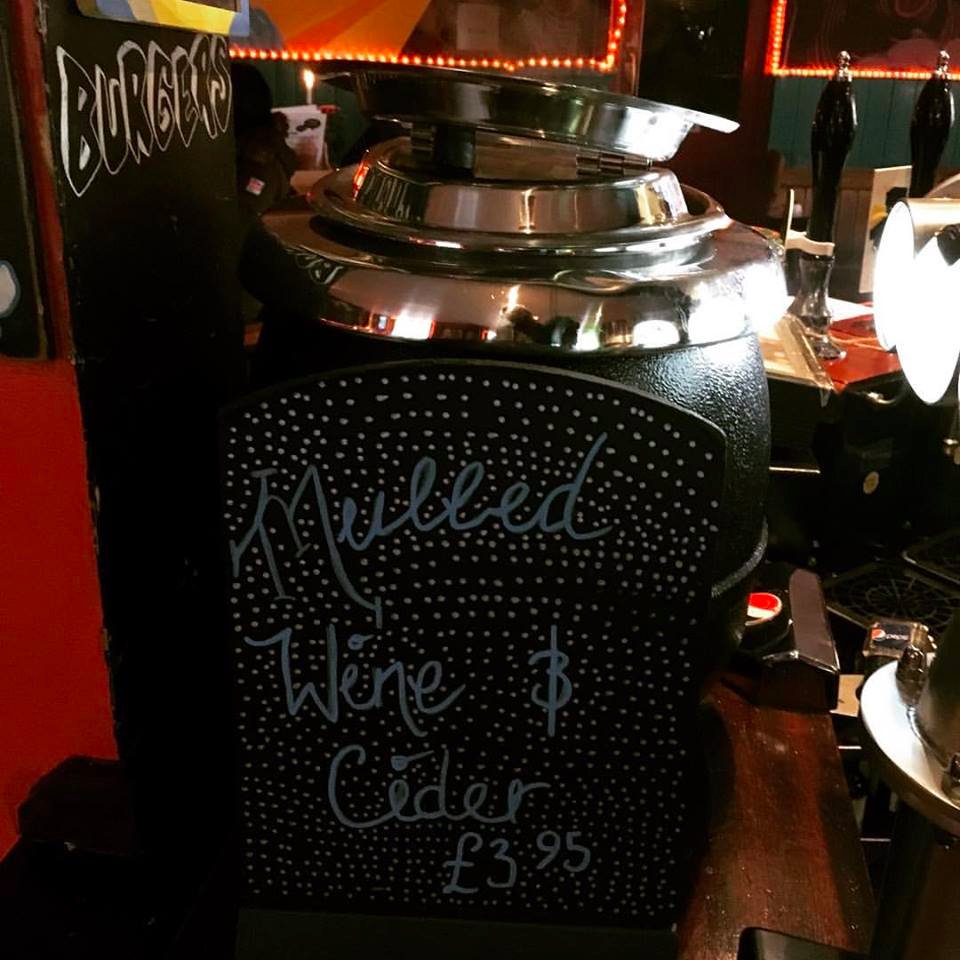 BURGERS
Mulled
Wine &
Cider
£3.95
pepsi